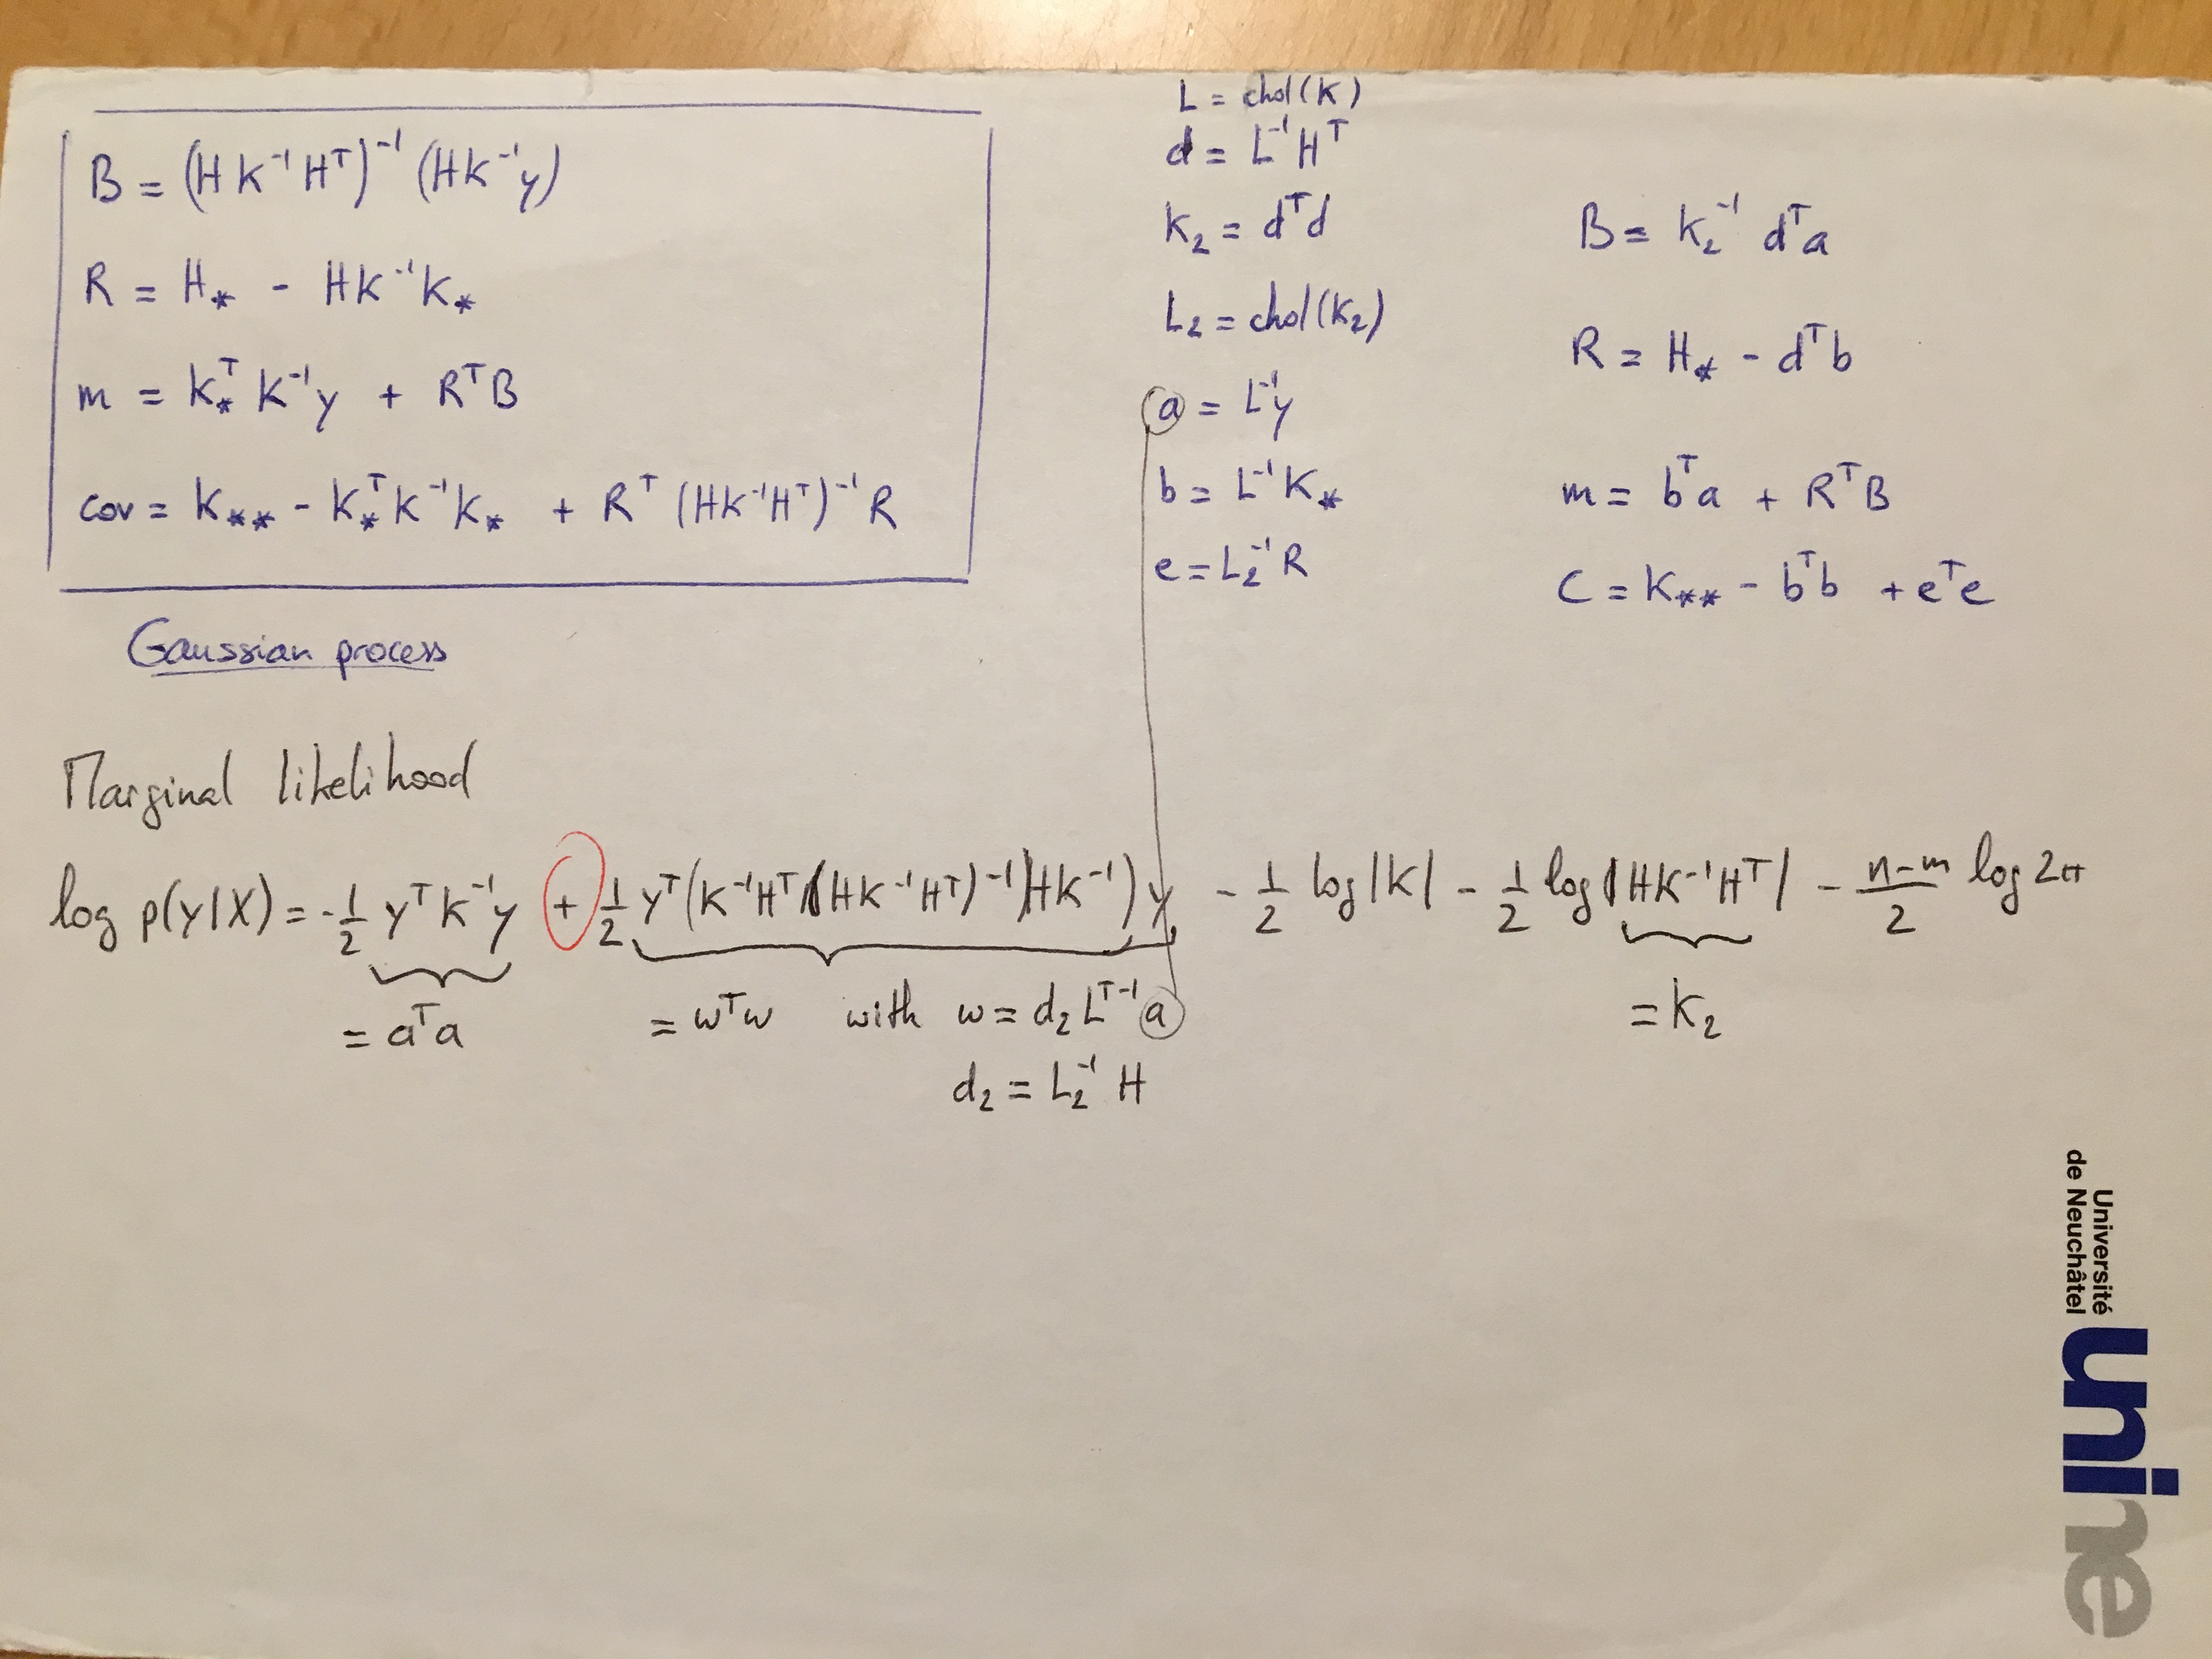 B = (H K⁻¹Hᵀ)⁻¹ (HK⁻¹y)
R = H* - HK⁻¹K*
m = K*ᵀ K⁻¹y + RᵀB
cov = K** - K*ᵀK⁻¹K* + Rᵀ(HK⁻¹Hᵀ)⁻¹R
Gaussian process
L = chol(K)
d = L⁻¹Hᵀ
K₂ = dᵀd
L₂ = chol(K₂)
a = L⁻¹y
b = L⁻¹K*
e = L₂⁻¹R
B = K₂⁻¹ dᵀa
R = H* - dᵀb
m = bᵀa + RᵀB
C = K** - bᵀb + eᵀe
Marginal likelihood
log p(y|X) = -½ yᵀK⁻¹y + ½ yᵀ(K⁻¹Hᵀ(HK⁻¹Hᵀ)⁻¹HK⁻¹)y - ½ log|K| - ½ log|HK⁻¹Hᵀ| - (n-m)/2 log 2π
= aᵀa
= wᵀw with w = d₂Lᵀ⁻¹a
= K₂
d₂ = L₂⁻¹H
unine
Université
de Neuchâtel